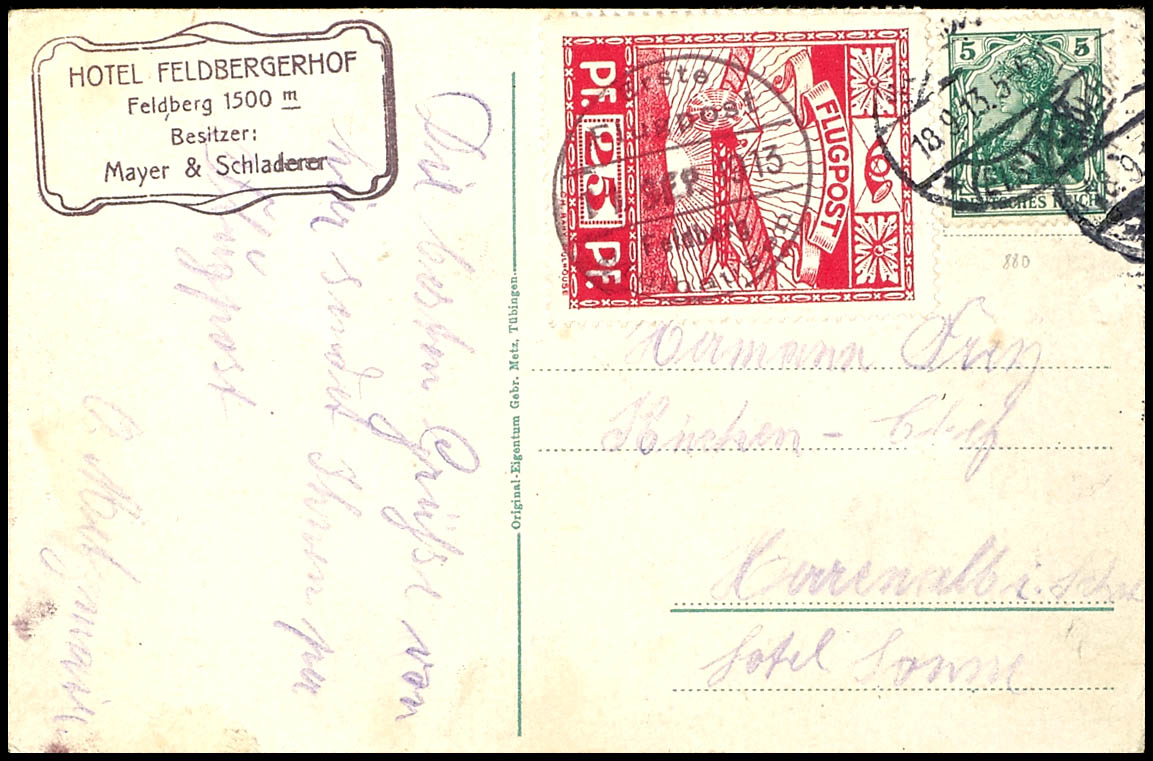 HOTEL FELDBERGERHOF
Feldberg 1500 m
Besitzer:
Mayer & Schladerer
Die besten Grüße von
hir sendet Ihnen per
Flugpost
Original-Eigentum Gebr. Metz, Tübingen.
PF. 25 PF.
FLUGPOST
Erste
Flugpost
SEP. 1913
Feldberg
5 5
DEUTSCHES REICH
18.9.13.5-6
880
Hermann Frey
Küchen - Chef
Herrenalb i. Schw
Hotel Sonne